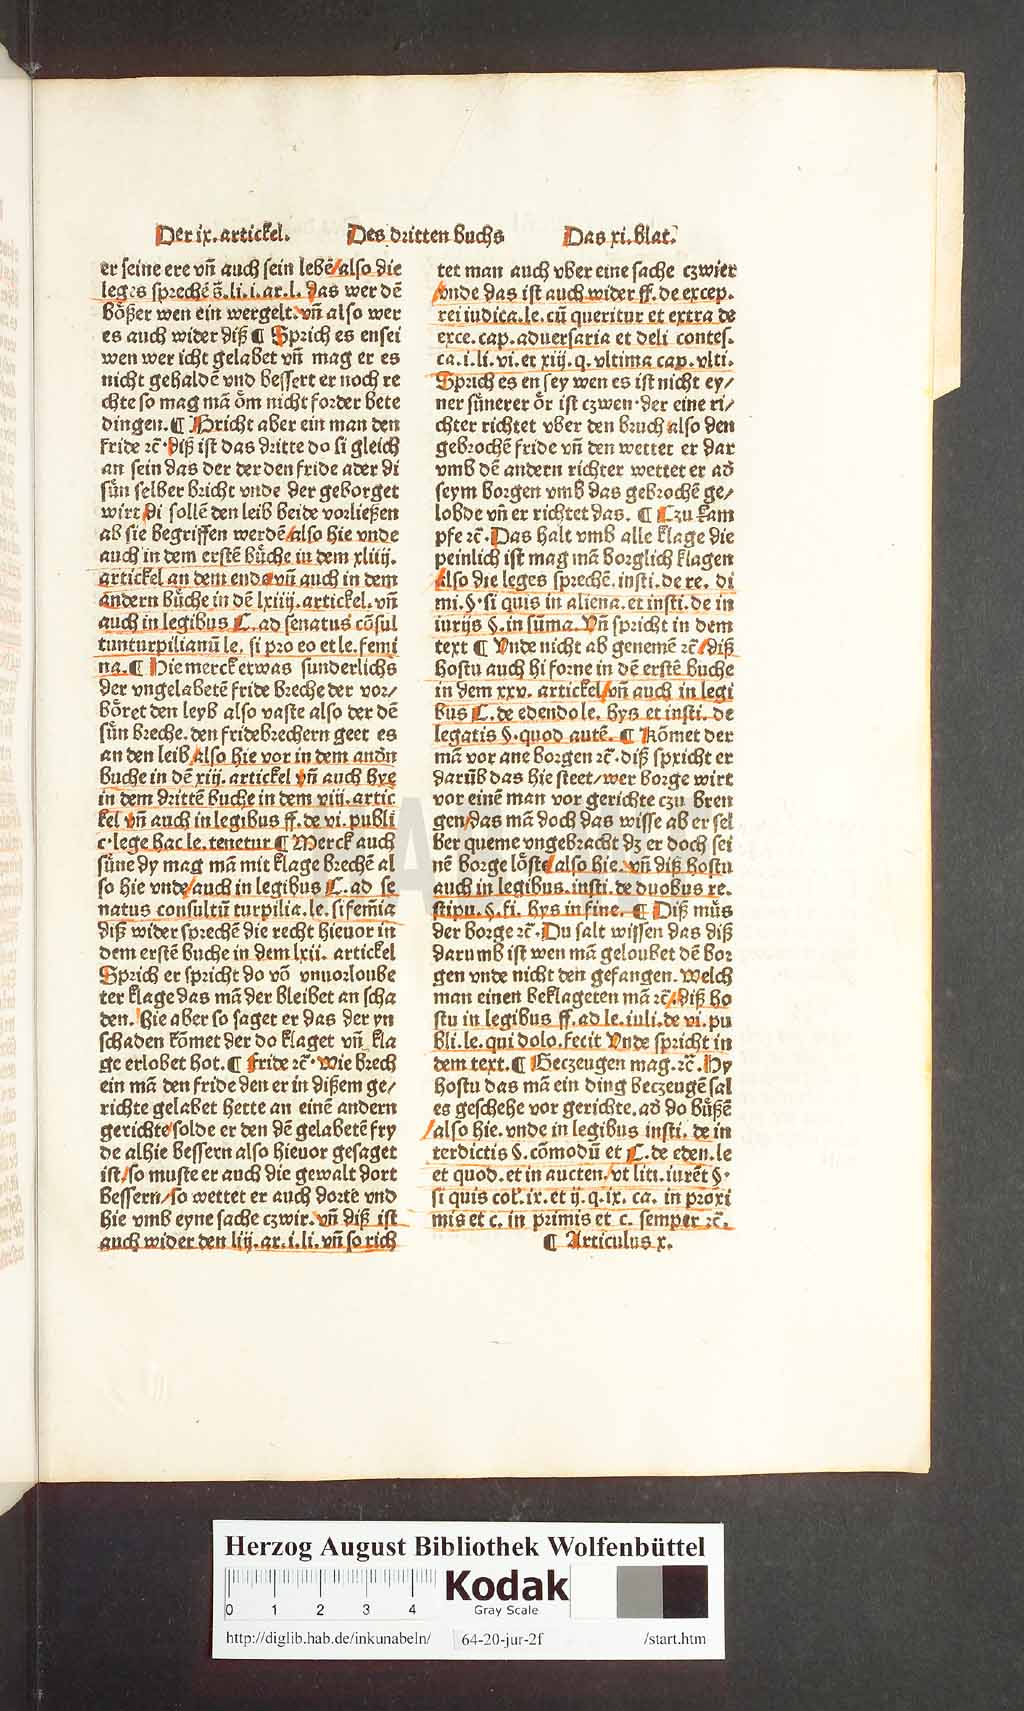 Der ix. artickel.
Des dritten buchs
Das xi. blat.
er seine ere vñ auch sein lebē/also die
leges sprechē s̄. li. i. ar. l. das wer dē
bȯßer wen ein wergelt. vñ also wer
es auch wider diß ¶ Sprich es ensei
wen wer icht gelabet vñ mag er es
nicht gehaldē vnd bessert er noch re
chte so mag mā ȯm nicht forder bete
dingen. ¶ Bricht aber ein man den
fride ꝛc̄. diß ist das dritte do si gleich
an sein das der der den fride ader di
sůn selber bricht vnde der geborget
wirt/di sollē den leib beide vorließen
ab sie begriffen werdē/also hie vnde
auch in dem erstē bůche in dem xliiij.
artickel an dem ende vñ auch in dem
andern bůche in dē lxiiij. artickel. vñ
auch in legibus C. ad senatus cōsul
tunturpilianū le. si pro eo et le. femi
na. ¶ Hie merck etwas sunderlichs
der vngelabetē fride breche der vor/
bȯret den leyb also vaste also der dē
sůn breche. den fridebrechern geet es
an den leib/also hie vor in dem andn̄
buche in dē xiij. artickel vñ auch hye
in dem drittē buche in dem viij. artic
kel vñ auch in legibus ff. de vi. publi
c. lege hac le. tenetur ¶ Merck auch
sůne dy mag mā mit klage brechē al
so hie vnde/auch in legibus C. ad se
natus consultū turpilia. le. si fem̄ia
diß wider sprechē die recht hieuor in
dem erstē buche in dem lxii. artickel
Sprich er spricht do vō vnuorloube
ter klage das mā der bleibet an scha
den. Hie aber so saget er das der yn
schaden kōmet der do klaget vñ kla
ge erlobet hot. ¶ Fride ꝛc̄. Wie brech
ein mā den fride den er in dißem ge/
richte gelabet hette an einē andern
gerichte/solde er den dē gelabetē fry
de alhie bessern also hieuor gesaget
ist/so muste er auch die gewalt dort
bessern/so wettet er auch dorte vnd
hie vmb eyne sache czwir. vñ diß ist
auch wider den liij. ar. i. li. vñ so rich
tet man auch vber eine sache czwier
/vnde das ist auch wider ff. de excep.
rei iudica. le. cū queritur et extra de
exce. cap. aduersaria et deli contes.
ca. i. li. vi. et xiij. q. vltima cap. vlti.
Sprich es en sey wen es ist nicht ey/
ner sůnerer ȯr ist czwen. der eine ri/
chter richtet vber den bruch also den
gebrochē fride vñ den wettet er dar
vmb dē andern richter wettet er ad̄
seym borgen vmb das gebrochē ge/
lobde vñ er richtet das. ¶ Czu kam
pfe ꝛc̄. Das halt vmb alle klage die
peinlich ist mag mā borglich klagen
Also die leges sprechē. insti. de re. di
mi. §. si quis in aliena. et insti. de in
iurijs §. in sūma. Vñ spricht in dem
text ¶ Vnde nicht ab genemē ꝛc̄/diß
hostu auch hi forne in dē erstē buche
in dem xxv. artickel/vñ auch in legi
bus C. de edendo le. hys et insti. de
legatis §. quod autē. ¶ Kōmet der
mā vor ane borgen ꝛc̄. diß spricht er
darūb das hie steet/wer borge wirt
vor einē man vor gerichte czu bren
gen/das mā doch das wisse ab er sel
ber queme vngebracht dꝫ er doch sei
nē borge lȯste/also hie. vñ diß hostu
auch in legibus. insti. de duobus re.
stipu. §. fi. hys in fine. ¶ Diß můs
der borge ꝛc̄. Du salt wissen das diß
darumb ist wen mā geloubet dē bor
gen vnde nicht den gefangen. Welch
man einen beklageten mā ꝛc̄/diß ho
stu in legibus ff. ad le. iuli. de vi. pu
bli. le. qui dolo. fecit Vnde spricht in
dem text. ¶ Beczeugen mag. ꝛc̄. Hy
hostu das mā ein ding beczeugē sal
es geschehe vor gerichte. ad̄ do bůßē
/also hie. vnde in legibus insti. de in
terdictis §. cōmodū et C. de eden. le
et quod. et in aucten/vt liti. iurēt §.
si quis col̄. ix. et ij. q. ix. ca. in proxi
mis et c. in primis et c. semper ꝛc̄.
¶ Articulus x.
Herzog August Bibliothek Wolfenbüttel
0 1 2 3 4
Kodak
Gray Scale
http://diglib.hab.de/inkunabeln/ 64-20-jur-2f /start.htm